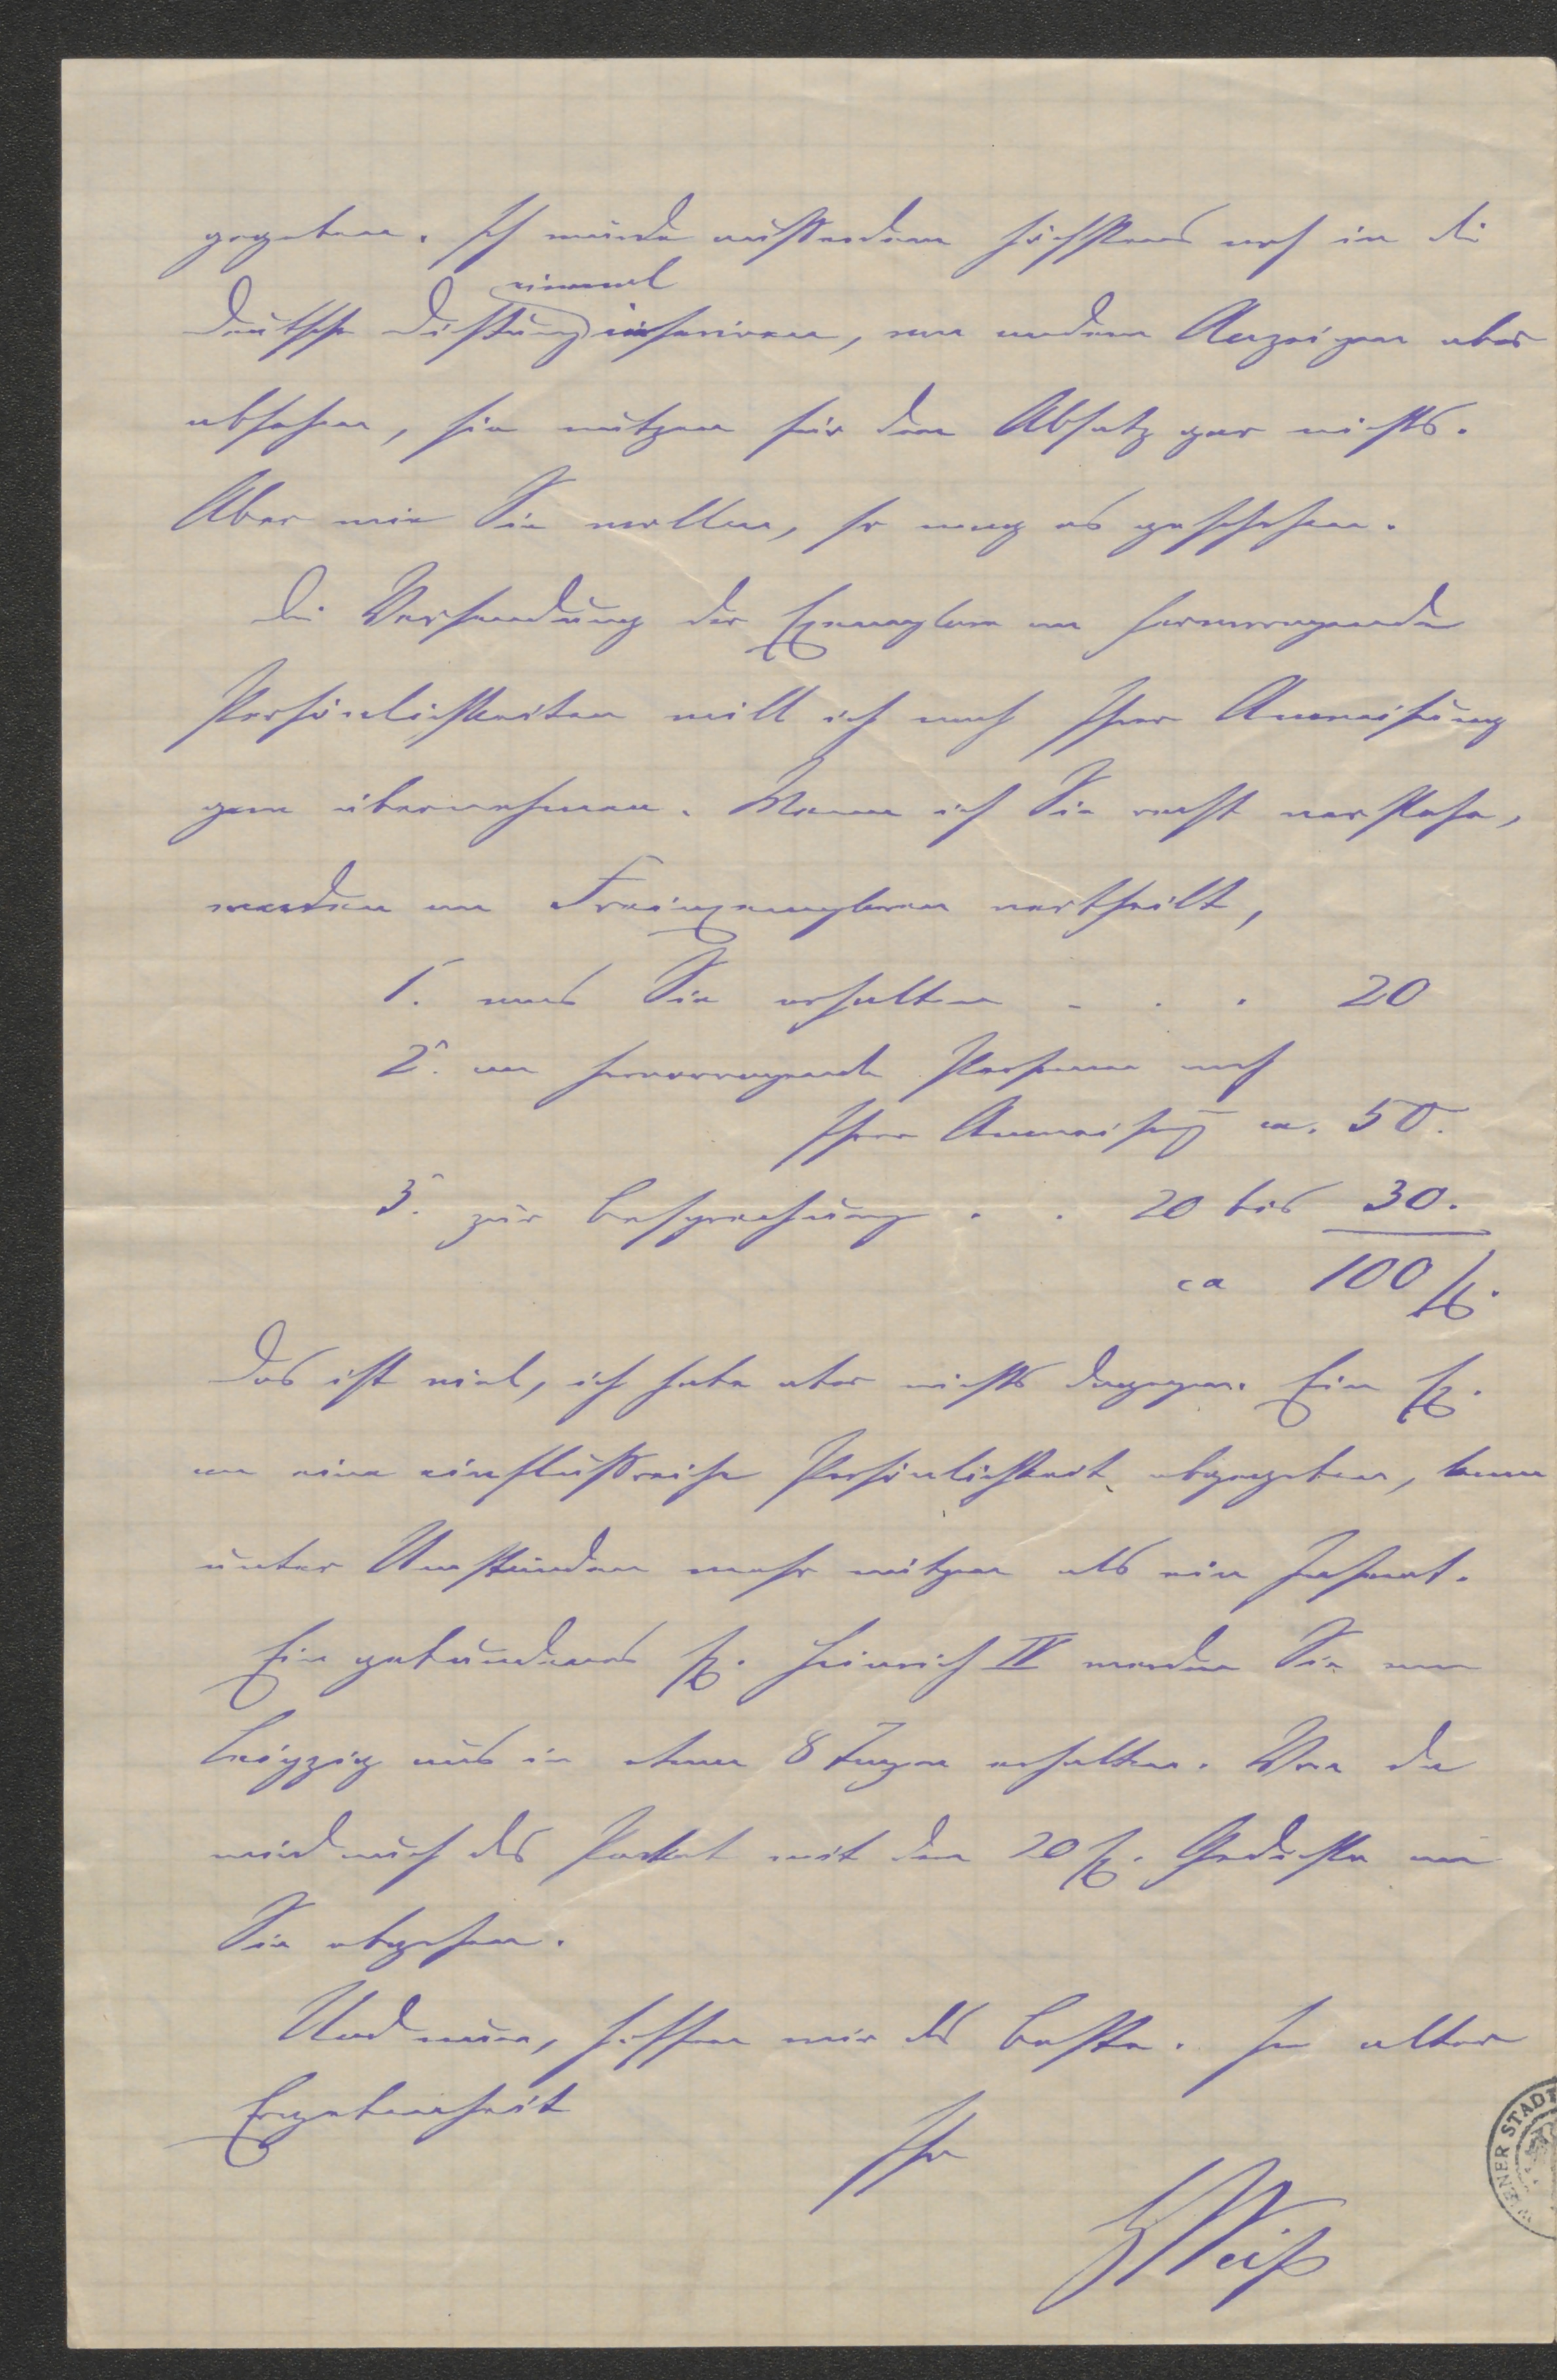 gegeben. Ich würde außerdem höchstens noch in die
einmal
Deutsche Dichtung inseriren, von andern Anzeigen aber
absehen, sie nützen für den Absatz gar nichts.
Aber wie Sie wollen, so mag es geschehen.
Die Versendung der Exemplare an hervorragende
Persönlichkeiten will ich nach Ihrer Anweisung
gern übernehmen. Wenn ich Sie recht verstehe,
werden an Freiexemplaren vertheilt,
1. was Sie erhalten . . . 20
2. an hervorragende Personen nach
Ihrer Anweisung ca. 50.
3. zur Besprechung . . 20 bis 30.
ca 100 Ex.
Das ist viel, ich habe aber nichts dagegen. Ein Ex.
an eine einflußreiche Persönlichkeit abgegeben, kann
unter Umständen mehr nützen als ein Inserat.
Ein gebundenes Ex. Heinrich IV werden Sie von
Leipzig aus in etwa 8 Tagen erhalten. Von da
wird auch das Packet mit den 20 Ex. Gedichte an
Sie abgehen.
Und nun, hoffen wir das Beste. In alter
Ergebenheit
Ihr
Weiß
WIENER STADT